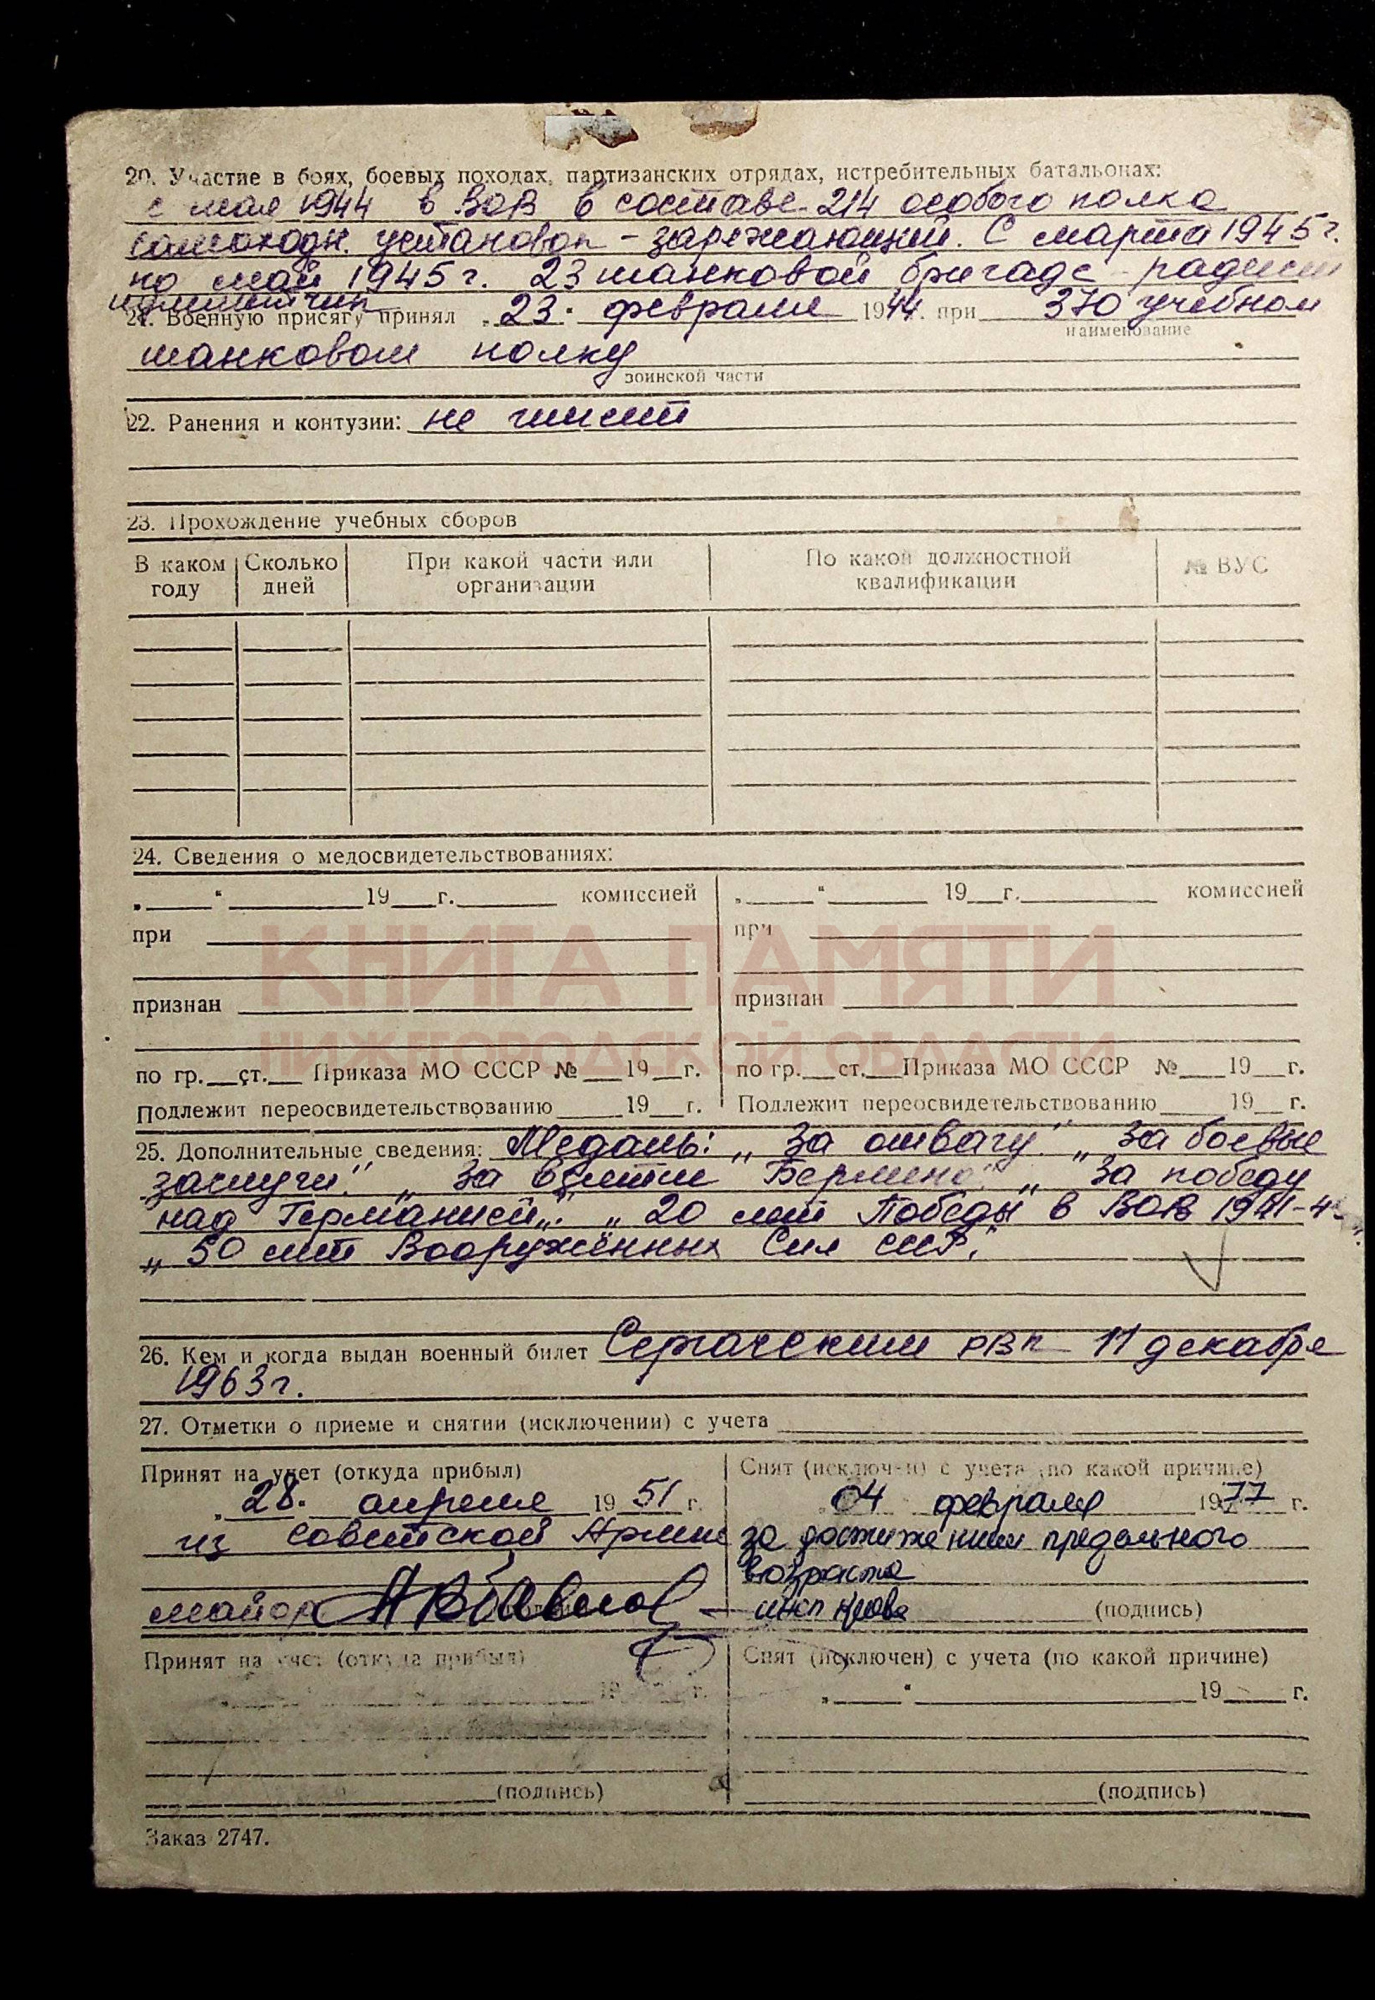 20. Участие в боях, боевых походах, партизанских отрядах, истребительных батальонах:
с мая 1944 в ВОВ в составе 214 особого полка
самоходн. установок - заряжающий. С марта 1945 г.
по май 1945 г. 23 танковой бригаде - радист
21. Военную присягу принял „23" февраля 1944 г. при 370 учебном
наименование
танковом полку
воинской части
22. Ранения и контузии: не имеит
23. Прохождение учебных сборов
В каком году Сколько дней При какой части или организации По какой должностной квалификации № ВУС
24. Сведения о медосвидетельствованиях:
„ “ 19 г. комиссией „ “ 19 г. комиссией
при при
КНИГА ПАМЯТИ
признан признан
НИЖЕГОРОДСКОЙ ОБЛАСТИ
по гр. ст. Приказа МО СССР № 19 г. по гр. ст. Приказа МО СССР № 19 г.
Подлежит переосвидетельствованию 19 г. Подлежит переосвидетельствованию 19 г.
25. Дополнительные сведения: Медаль: „За отвагу" „За боевые
заслуги." „За взятие Берлина" „За победу
над Германией". „20 лет Победы в ВОВ 1941-4
„50 лет Вооружённых Сил СССР."
26. Кем и когда выдан военный билет Сергачским РВК 11 декабря
1963 г.
27. Отметки о приеме и снятии (исключении) с учета
Принят на учет (откуда прибыл) Снят (исключен) с учета (по какой причине)
„28. апреля 1951 г. 04 февраля 1977 г.
из Советской Армии за достижением предельного
возраста
майор инсп (подпись)
Принят на учет (откуда прибыл) Снят (исключен) с учета (по какой причине)
19 г. „ “ 19 г.
(подпись) (подпись)
Заказ 2747.